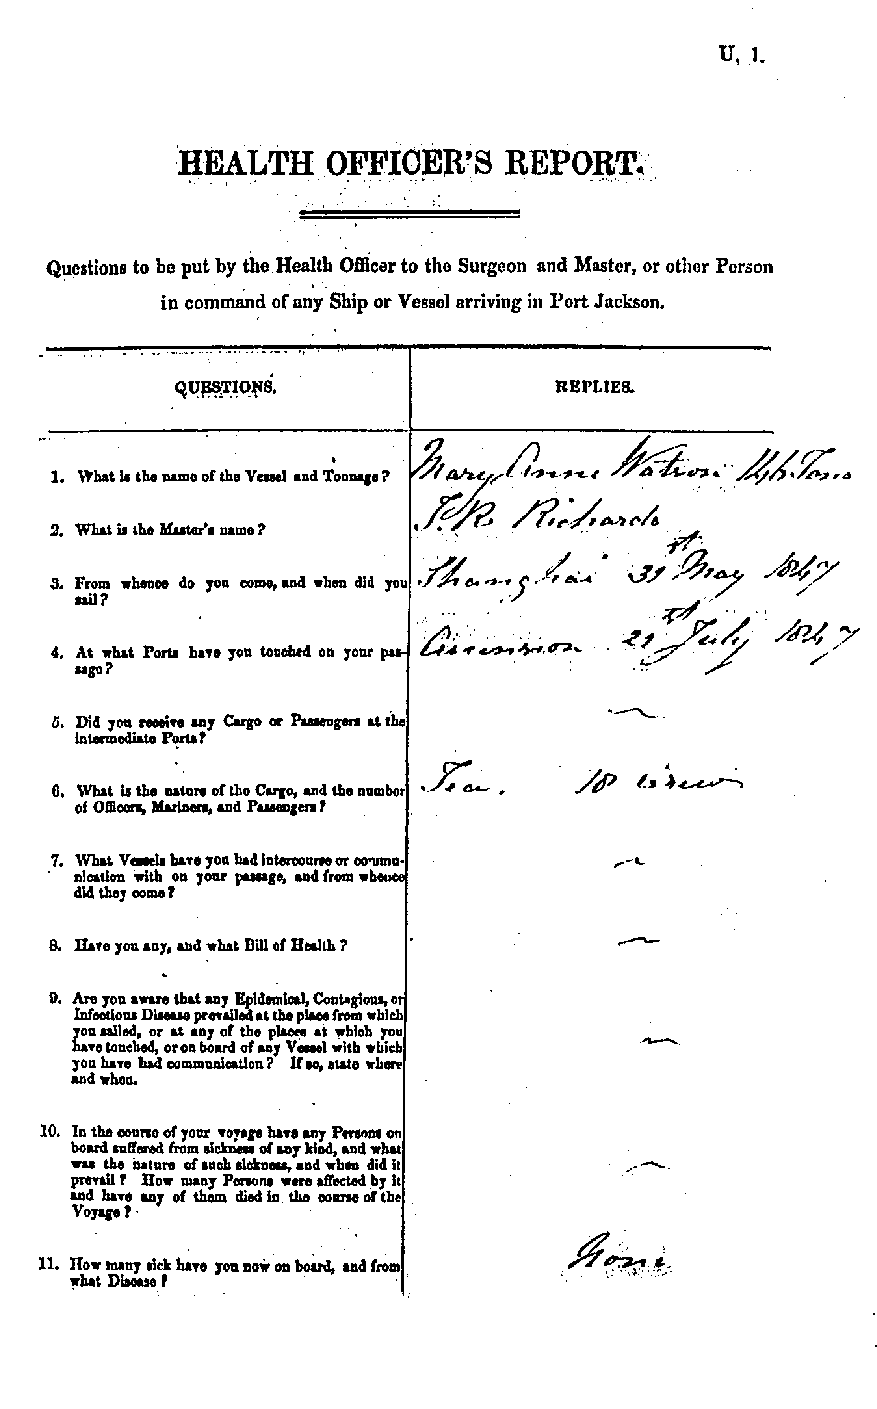 U, 1.
HEALTH OFFICER'S REPORT.
Questions to be put by the Health Officer to the Surgeon and Master, or other Person
in command of any Ship or Vessel arriving in Port Jackson.
QUESTIONS.
REPLIES.
1. What is the name of the Vessel and Tonnage?
Mary Anne Watson Tons
2. What is the Master's name?
Richards
3. From whence do you come, and when did you
sail?
Shanghai 31st May 1847
4. At what Ports have you touched on your pas-
sage?
Ascension 21st July 1847
5. Did you receive any Cargo or Passengers at the
intermediate Ports?
6. What is the nature of the Cargo, and the number
of Officers, Mariners, and Passengers?
Tea. 10 Crew
7. What Vessels have you had intercourse or commu-
nication with on your passage, and from whence
did they come?
8. Have you any, and what Bill of Health?
9. Are you aware that any Epidemical, Contagious, or
Infectious Disease prevailed at the place from which
you sailed, or at any of the places at which you
have touched, or on board of any Vessel with which
you have had communication? If so, state where
and when.
10. In the course of your voyage have any Persons on
board suffered from sickness of any kind, and what
was the nature of such sickness, and when did it
prevail? How many Persons were affected by it
and have any of them died in the course of the
Voyage?
11. How many sick have you now on board, and from
what Disease?
None